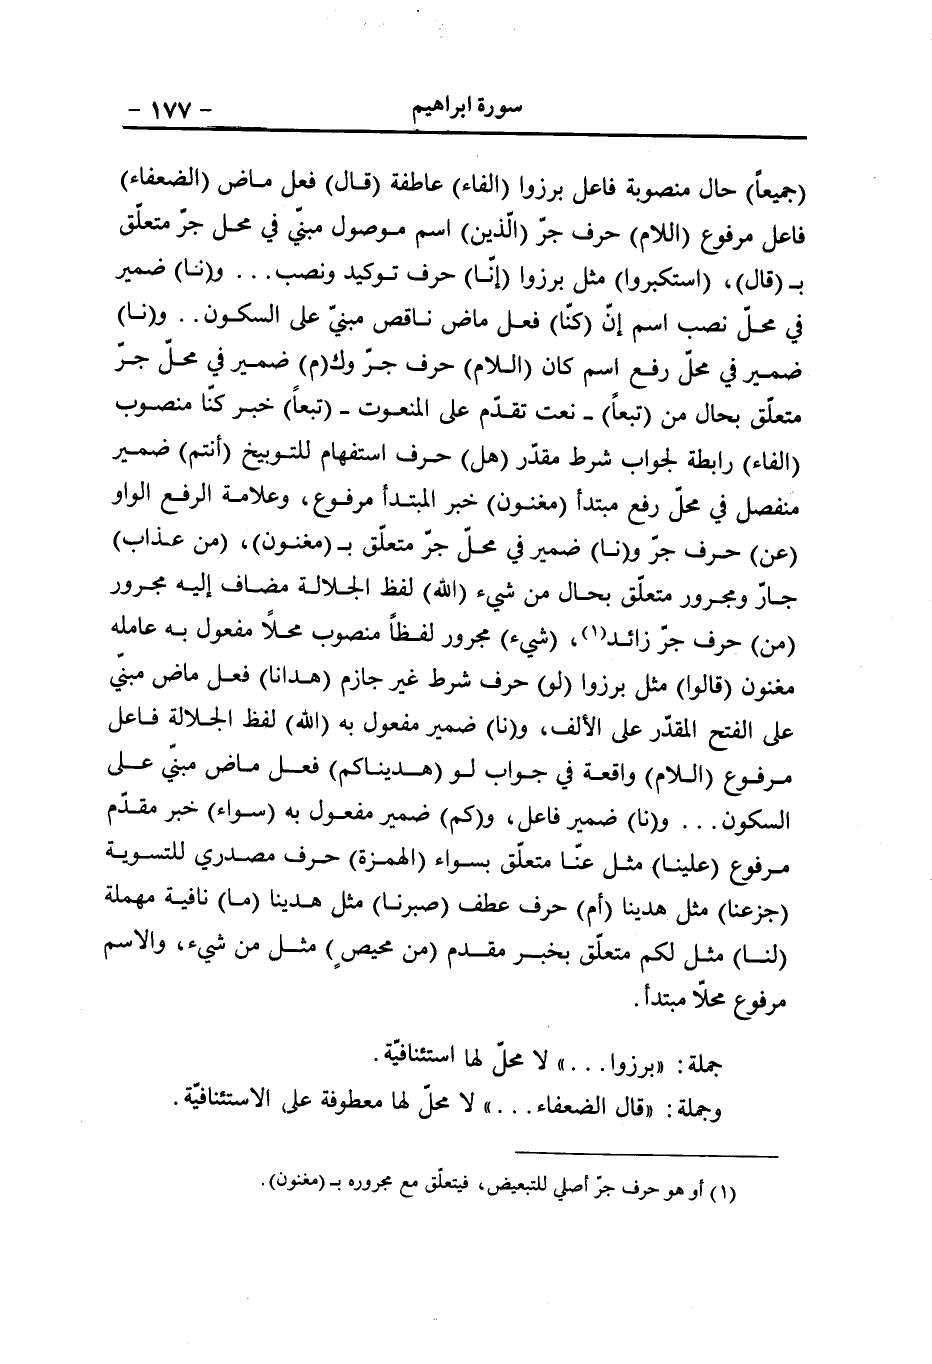 سورة ابراهيم
- ١٧٧ -
(جميعاً) حال منصوبة فاعل برزوا (الفاء) عاطفة (قال) فعل ماض (الضعفاء)
فاعل مرفوع (اللام) حرف جرّ (الّذين) اسم موصول مبنيّ في محل جرّ متعلّق
بـ (قال)، (استكبروا) مثل برزوا (إنّا) حرف توكيد ونصب... و(نا) ضمير
في محلّ نصب اسم إنّ (كنّا) فعل ماض ناقص مبنيّ على السكون.. و(نا)
ضمير في محلّ رفع اسم كان (اللام) حرف جرّ وك(م) ضمير في محلّ جرّ
متعلّق بحال من (تبعاً) ـ نعت تقدّم على المنعوت ـ (تبعاً) خبر كنّا منصوب
(الفاء) رابطة لجواب شرط مقدّر (هل) حرف استفهام للتوبيخ (أنتم) ضمير
منفصل في محلّ رفع مبتدأ (مغنون) خبر المبتدأ مرفوع، وعلامة الرفع الواو
(عن) حرف جرّ و(نا) ضمير في محلّ جرّ متعلّق بـ (مغنون)، (من عذاب)
جارّ ومجرور متعلّق بحال من شيء (الله) لفظ الجلالة مضاف إليه مجرور
(من) حرف جرّ زائد(١)، (شيء) مجرور لفظاً منصوب محلاً مفعول به عامله
مغنون (قالوا) مثل برزوا (لو) حرف شرط غير جازم (هدانا) فعل ماض مبنيّ
على الفتح المقدّر على الألف، و(نا) ضمير مفعول به (الله) لفظ الجلالة فاعل
مرفوع (اللام) واقعة في جواب لو (هديناكم) فعل ماض مبنيّ على
السكون... و(نا) ضمير فاعل، و(كم) ضمير مفعول به (سواء) خبر مقدّم
مرفوع (علينا) مثل عنّا متعلّق بسواء (الهمزة) حرف مصدري للتسوية
(جزعنا) مثل هدينا (أم) حرف عطف (صبرنا) مثل هدينا (ما) نافية مهملة
(لنا) مثل لكم متعلّق بخبر مقدم (من محيصٍ) مثل من شيء، والاسم
مرفوع محلّا مبتدأ.
جملة: «برزوا...» لا محلّ لها استئنافيّة.
وجملة: «قال الضعفاء...» لا محلّ لها معطوفة على الاستئنافيّة.
(١) أو هو حرف جرّ أصلي للتبعيض، فيتعلّق مع مجروره بـ (مغنون).